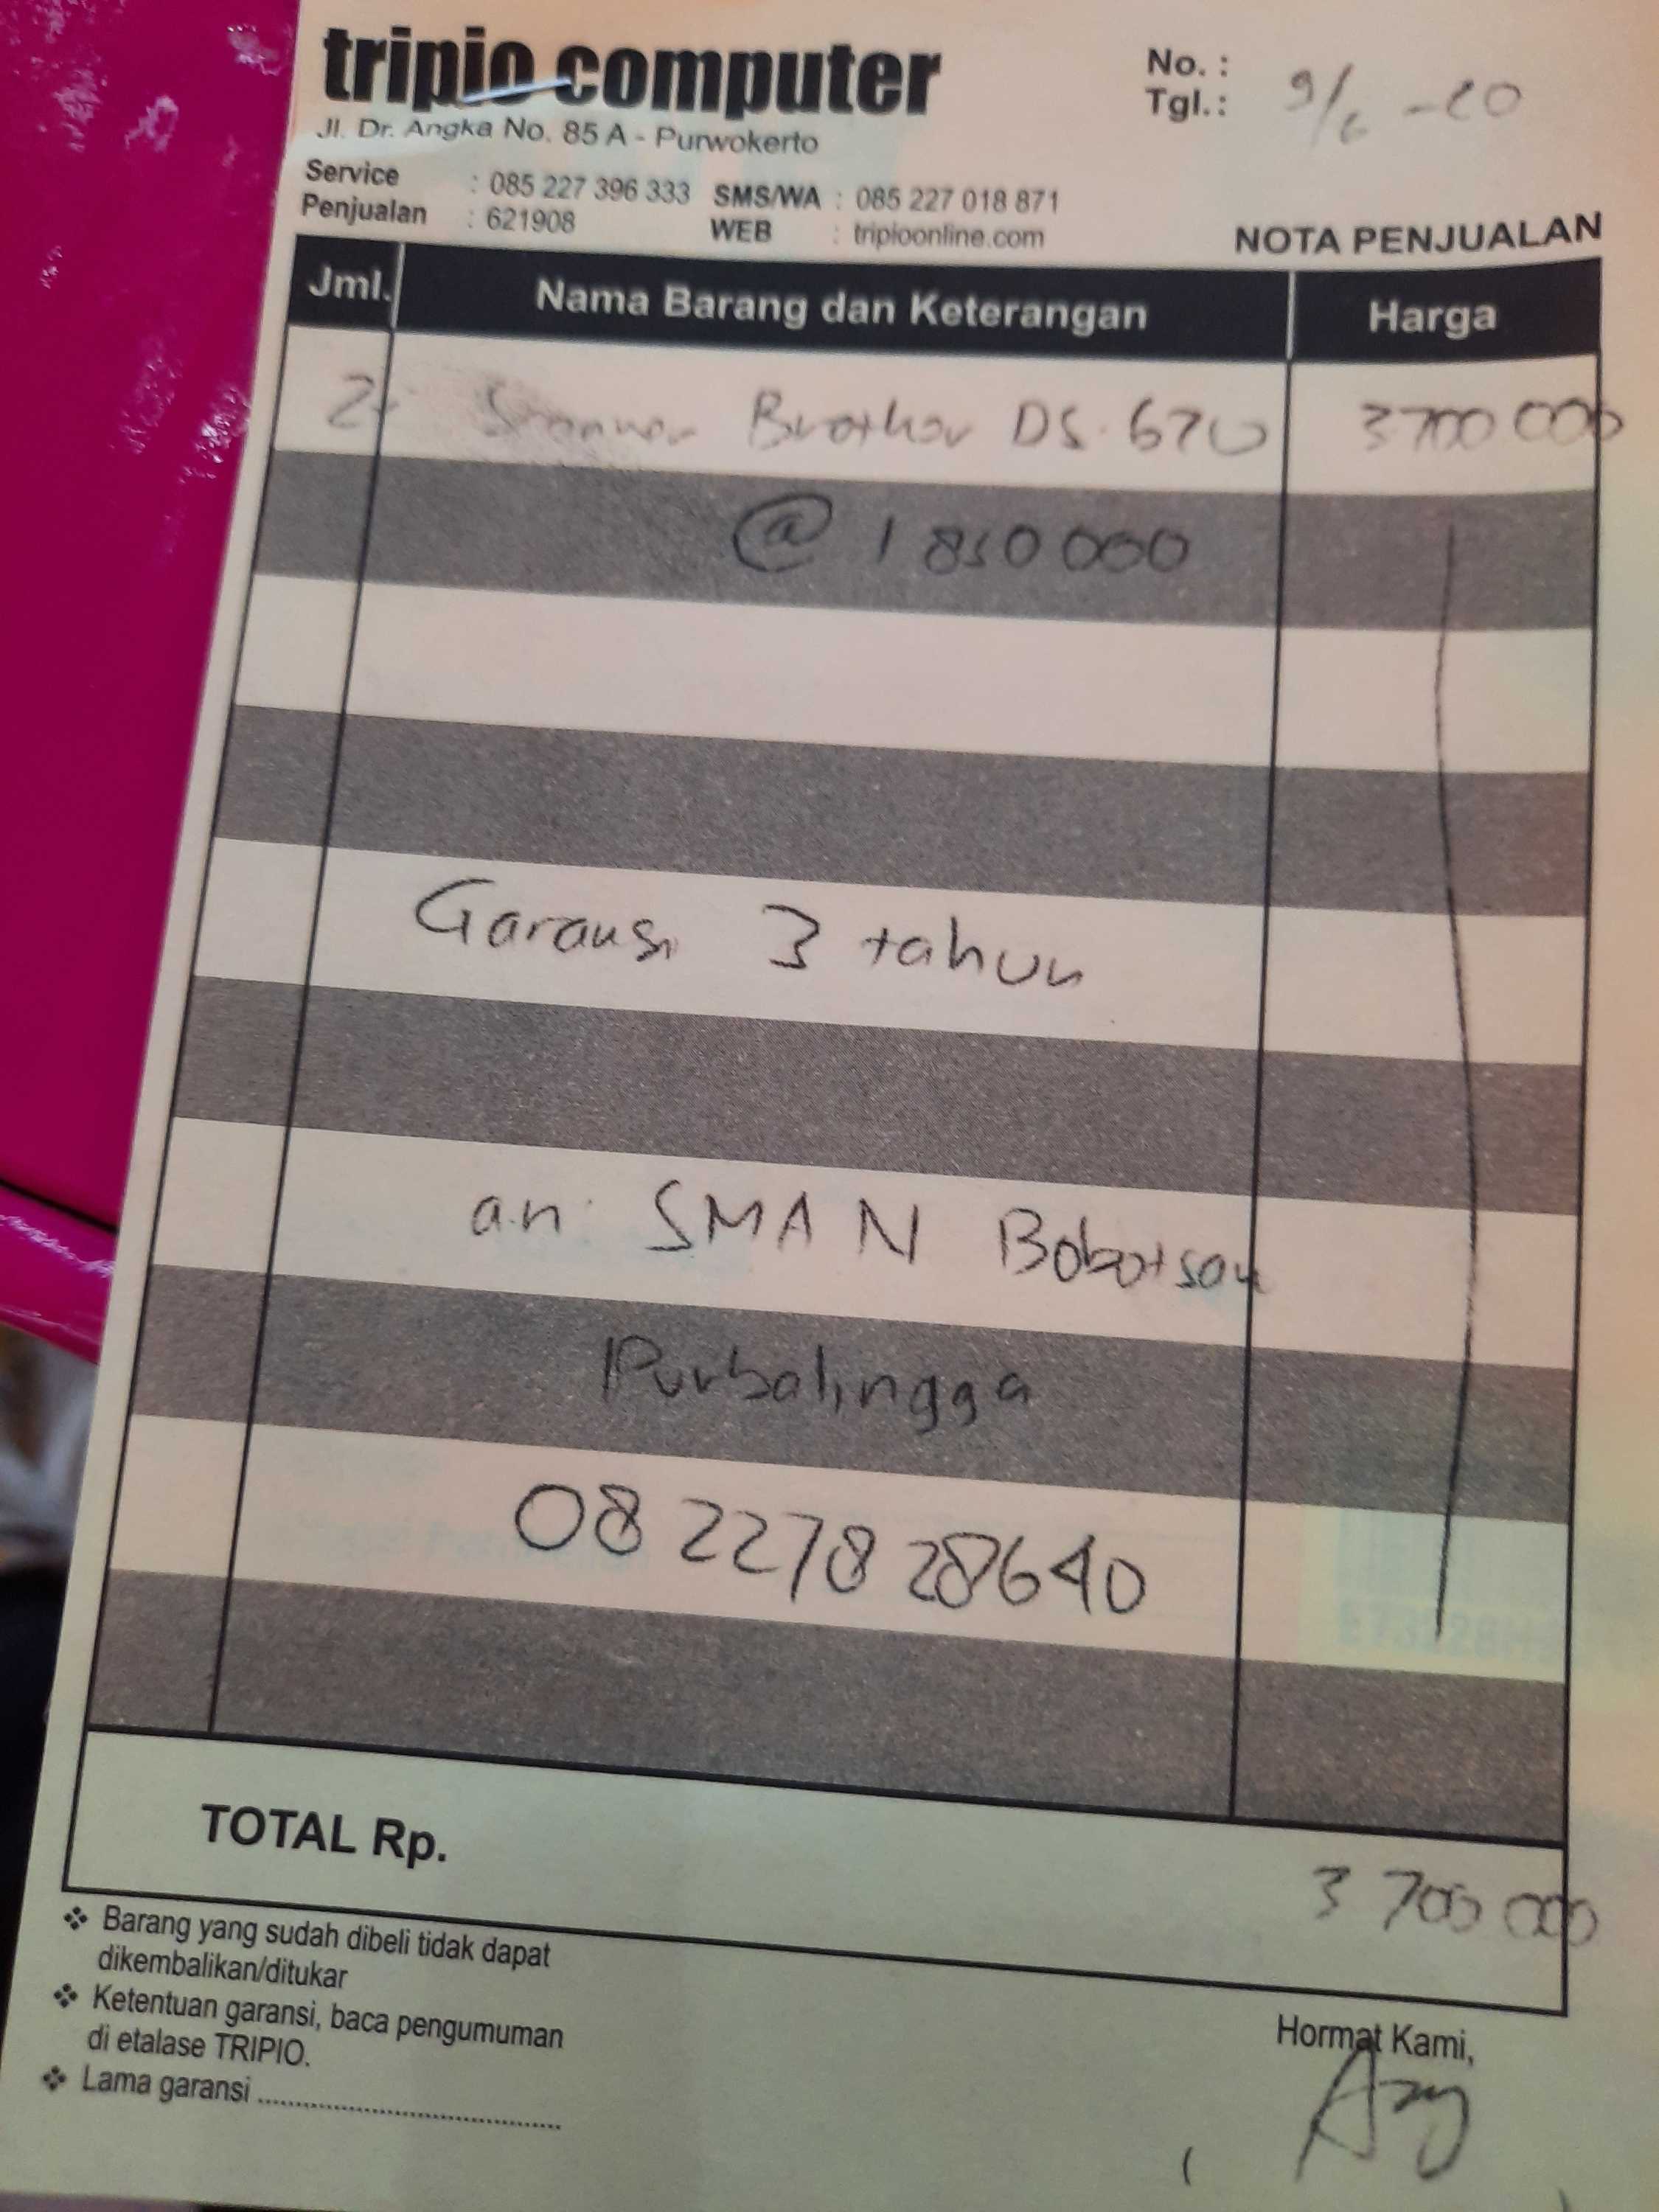 tripio computer
No. :
Jl. Dr. Angka No. 85 A - Purwokerto
Tgl.: 9/6 -20
Service : 085 227 396 333 SMS/WA : 085 227 018 871
Penjualan : 621908 WEB : tripioonline.com
NOTA PENJUALAN
Jml. Nama Barang dan Keterangan Harga
2 Scanner Brother DS.670 3700 000
@ 1 850 000
Garansi 3 tahun
a.n. SMA N Bobotsari
Purbalingga
08 2278 28640
TOTAL Rp. 3 700 000
❖ Barang yang sudah dibeli tidak dapat
dikembalikan/ditukar
❖ Ketentuan garansi, baca pengumuman
di etalase TRIPIO.
❖ Lama garansi ........................................
Hormat Kami,